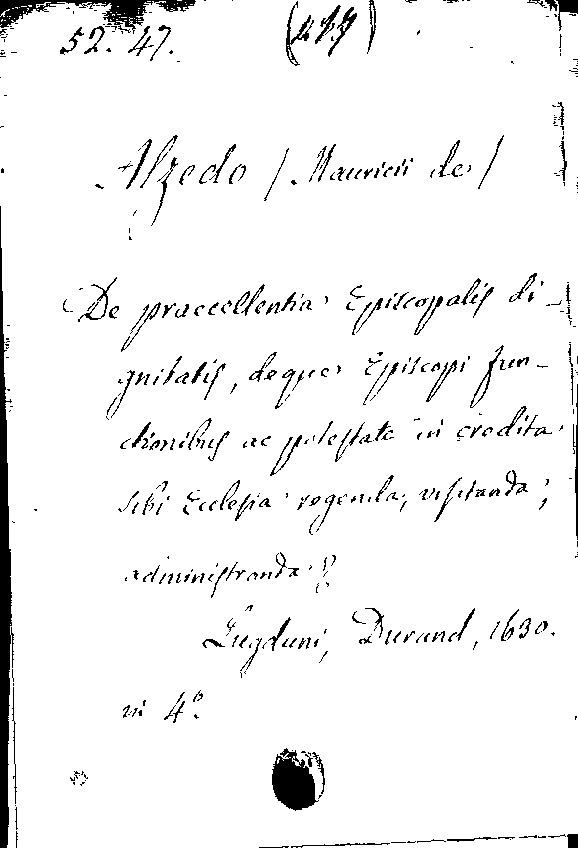 52. 47.
Alzedo / Mauricii de /
De praecellentia Episcopalis di-
gnitatis, deque Episcopi fun-
ctionibus ac potestate in credita
sibi Ecclesia regenda, visitanda,
administranda
Lugduni, Durand, 1630.
in 4º.